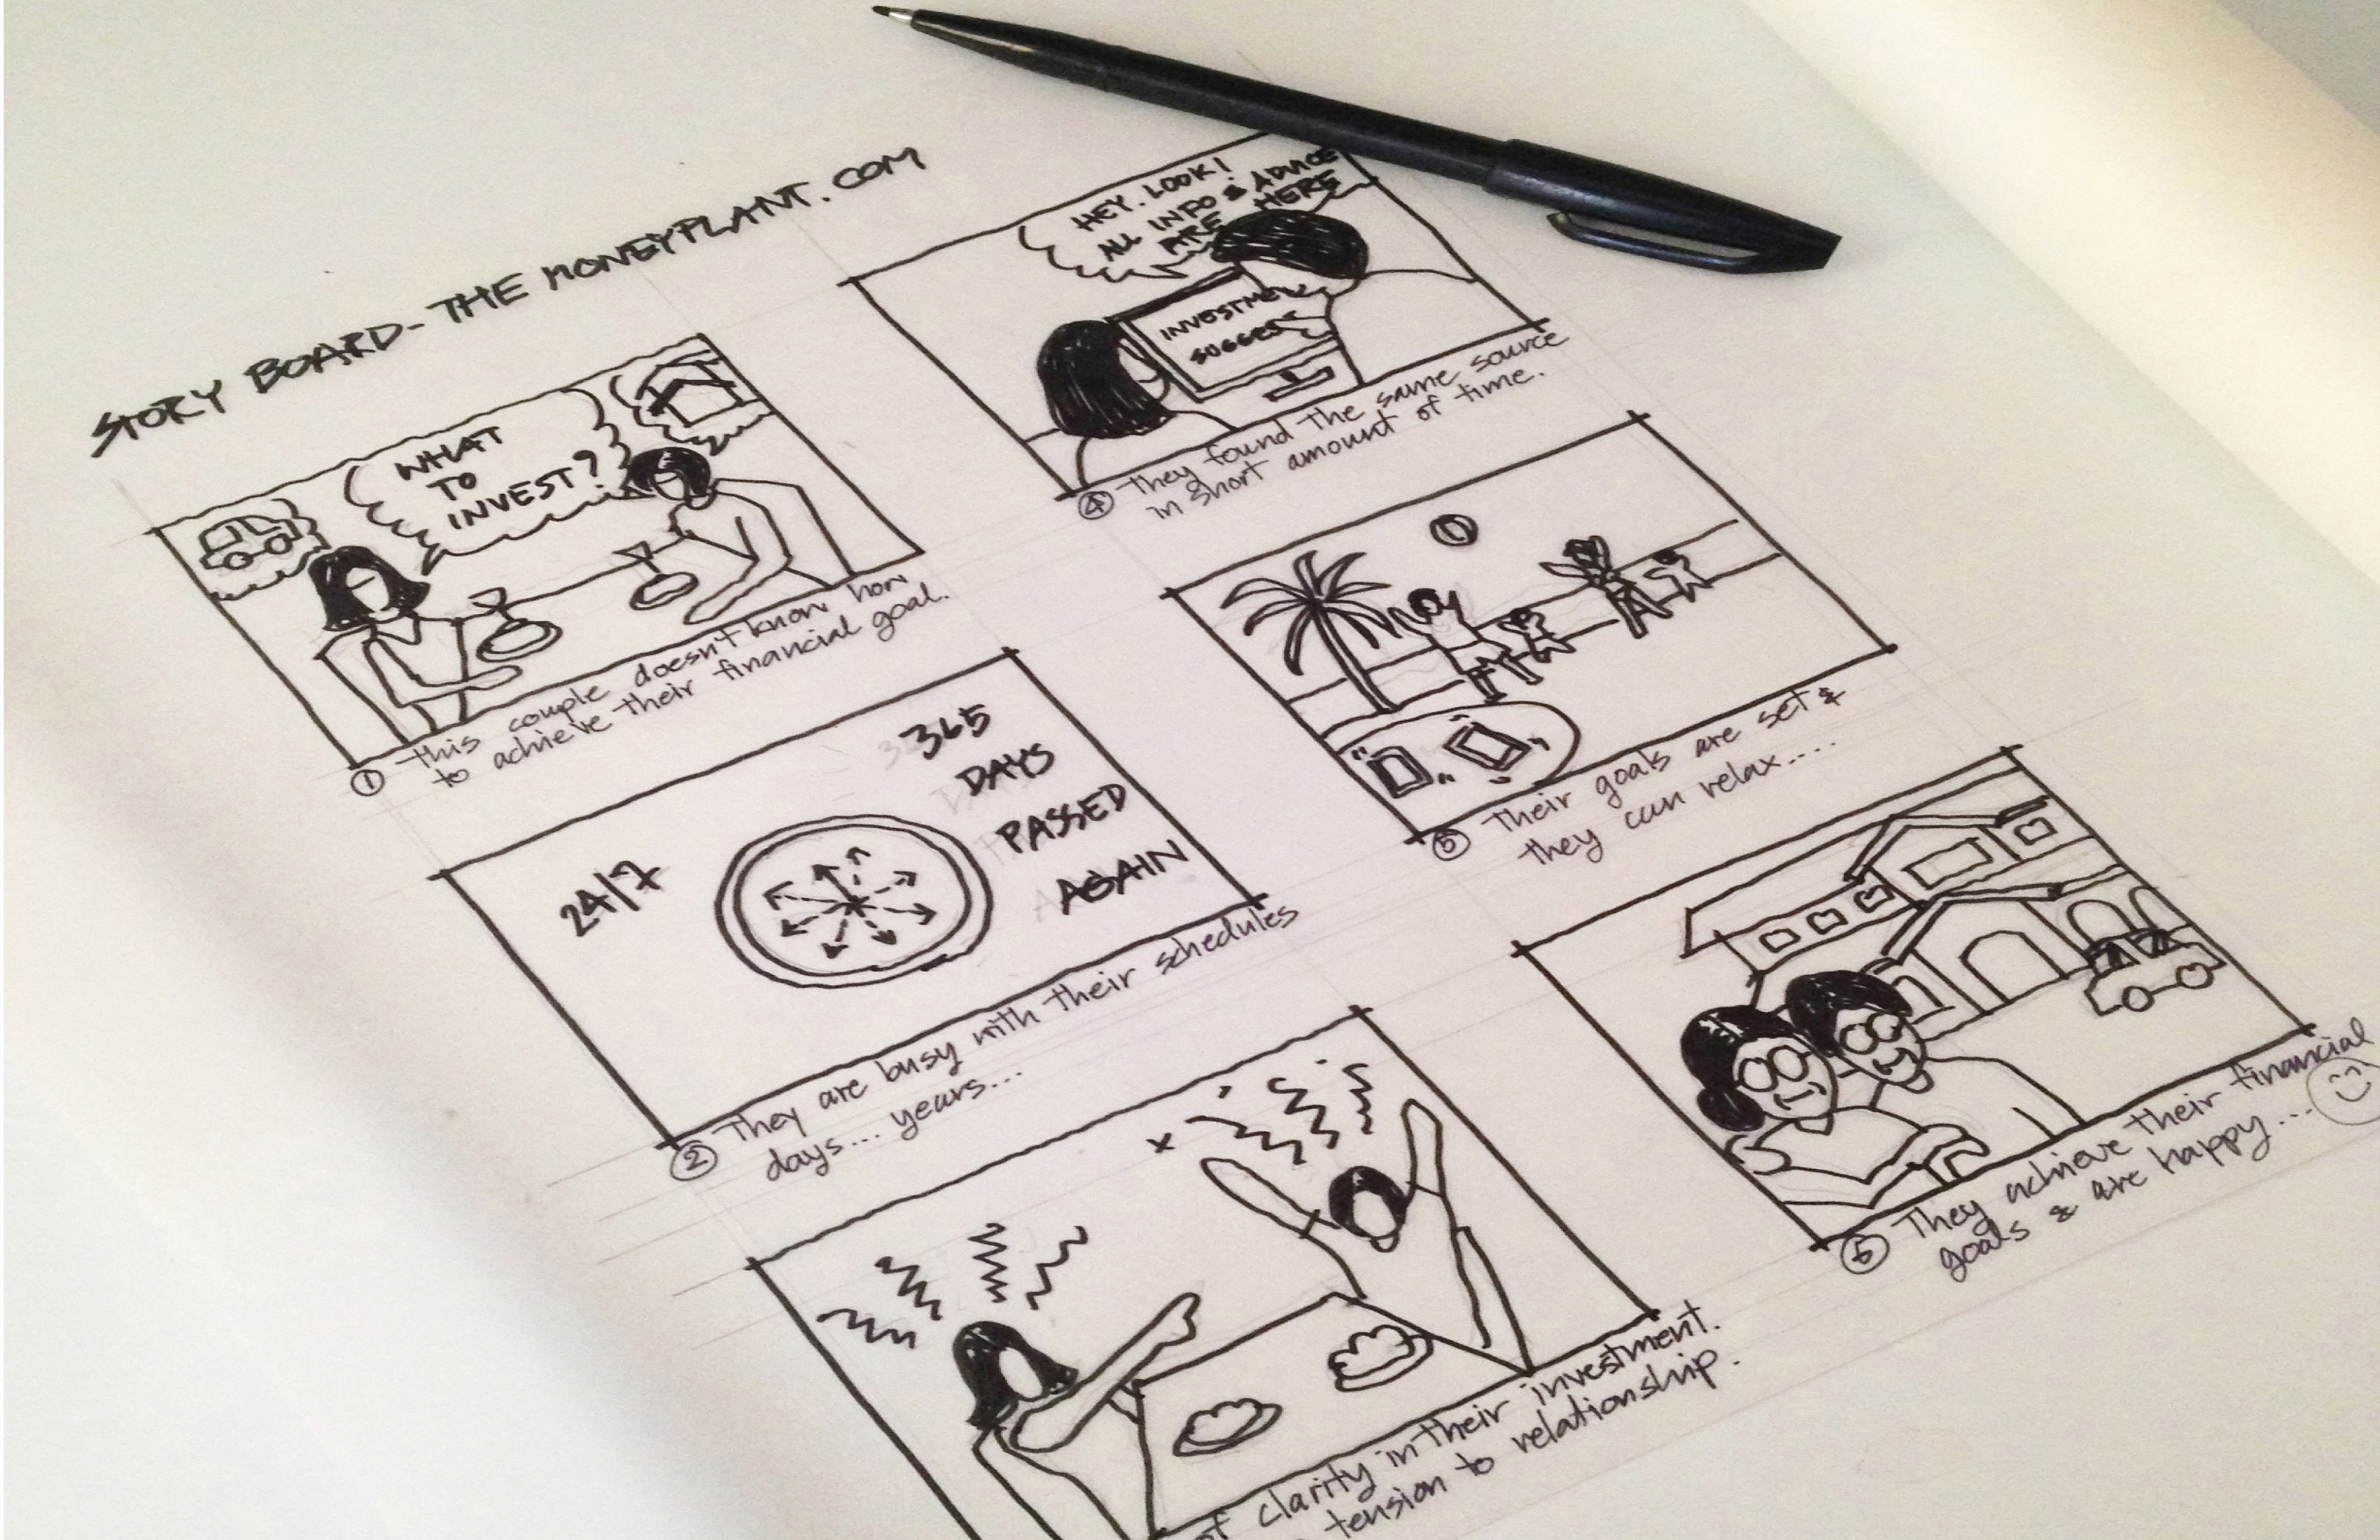 STORY BOARD - THE MONEYPLANT.COM
WHAT
TO
INVEST?
① This couple doesn't know how
to achieve their financial goal.
24/7
365
DAYS
PASSED
AGAIN
② They are busy with their schedules
days... years...
of clarity in their investment.
tension to relationship.
HEY. LOOK!
ALL INFO & ADVICE
ARE HERE
INVESTMEN
SUGGES
④ They found the same source
in short amount of time.
⑤ Their goals are set &
they can relax....
⑥ They achieve their financial
goals & are happy...